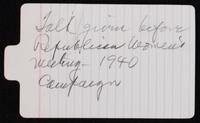 Talk given before
Republican Women's
meeting - 1940
Campaign